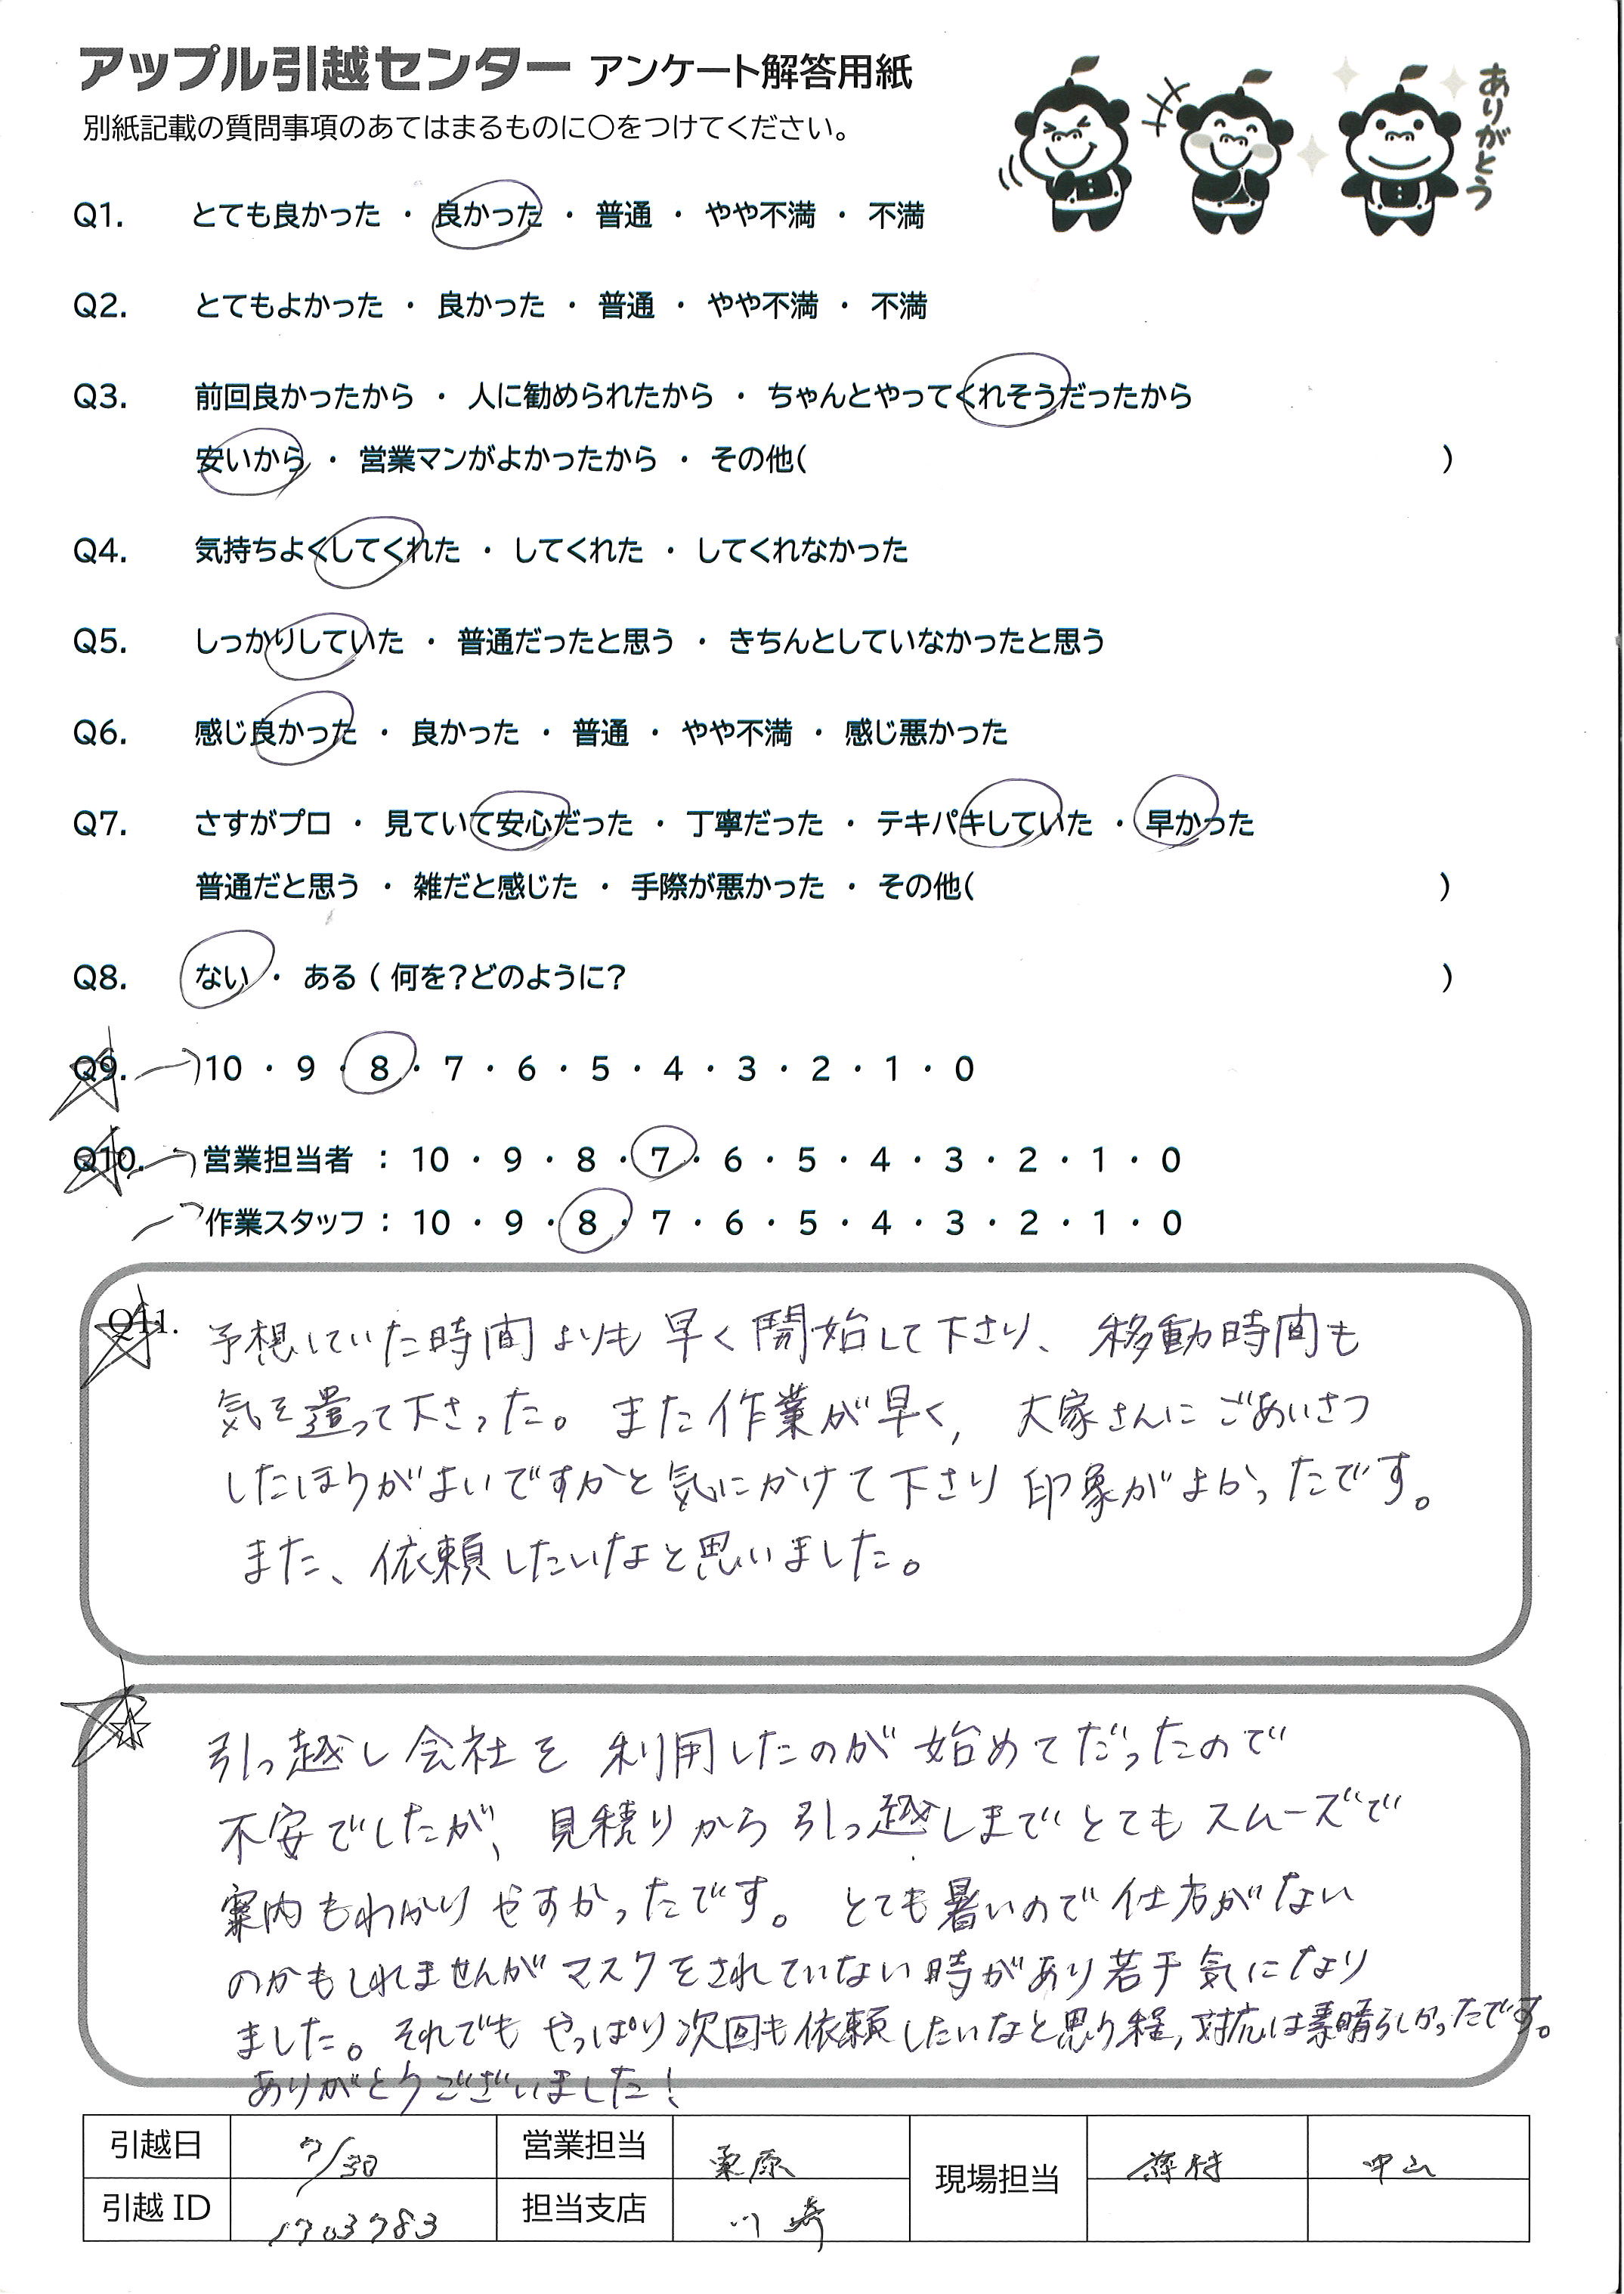 アップル引越センター アンケート解答用紙
別紙記載の質問事項のあてはまるものに○をつけてください。
ありがとう
Q1. とても良かった ・ 良かった ・ 普通 ・ やや不満 ・ 不満
Q2. とてもよかった ・ 良かった ・ 普通 ・ やや不満 ・ 不満
Q3. 前回良かったから ・ 人に勧められたから ・ ちゃんとやってくれそうだったから
安いから ・ 営業マンがよかったから ・ その他( )
Q4. 気持ちよくしてくれた ・ してくれた ・ してくれなかった
Q5. しっかりしていた ・ 普通だったと思う ・ きちんとしていなかったと思う
Q6. 感じ良かった ・ 良かった ・ 普通 ・ やや不満 ・ 感じ悪かった
Q7. さすがプロ ・ 見ていて安心だった ・ 丁寧だった ・ テキパキしていた ・ 早かった
普通だと思う ・ 雑だと感じた ・ 手際が悪かった ・ その他( )
Q8. ない ・ ある ( 何を?どのように? )
Q9. 10 ・ 9 ・ 8 ・ 7 ・ 6 ・ 5 ・ 4 ・ 3 ・ 2 ・ 1 ・ 0
Q10. 営業担当者 : 10 ・ 9 ・ 8 ・ 7 ・ 6 ・ 5 ・ 4 ・ 3 ・ 2 ・ 1 ・ 0
作業スタッフ : 10 ・ 9 ・ 8 ・ 7 ・ 6 ・ 5 ・ 4 ・ 3 ・ 2 ・ 1 ・ 0
Q11. 予想していた時間よりも早く開始して下さり、移動時間も
気を遣って下さった。また作業が早く, 大家さんにごあいさつ
したほうがよいですかと気にかけて下さり印象がよかったです。
また、依頼したいなと思いました。
☆ 引っ越し会社を利用したのが始めてだったので
不安でしたが、見積りから引っ越しまでとてもスムーズで
案内もわかりやすかったです。とても暑いので仕方がない
のかもしれませんがマスクをされていない時があり若干気になり
ました。それでもやっぱり次回も依頼したいなと思う程, 対応は素晴らしかったです。
ありがとうございました!
引越日 7/30 営業担当 栗原 現場担当 中山
引越ID 1703783 担当支店 川崎